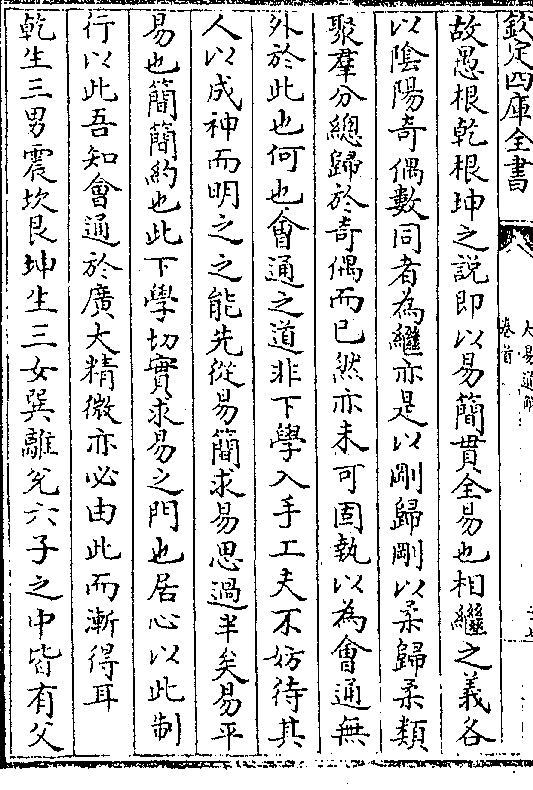 欽定四庫全書
大易通解
卷首
故愚根乾根坤之說即以易簡貫全易也相繼之義各
以陰陽奇偶數同者為繼亦是以剛歸剛以柔歸柔類
聚羣分總歸於奇偶而已然亦未可固執以為會通無
外於此也何也會通之道非下學入手工夫不妨待其
人以成神而明之之能先從易簡求易思過半矣易平
易也簡簡約也此下學切實求易之門也居心以此制
行以此吾知會通於廣大精微亦必由此而漸得耳
乾生三男震坎艮坤生三女巽離兌六子之中皆有父